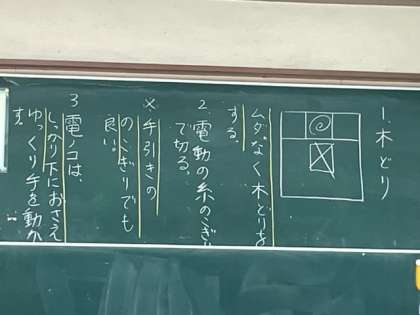 1. 木どり
ムダなく木どりを
する。
2. 電動の糸のこぎり
で切る。
※手引きの
のこぎりでも
良い。
3 電ノコは、
しっかり下におさえ
ゆっくり手を動か
す。